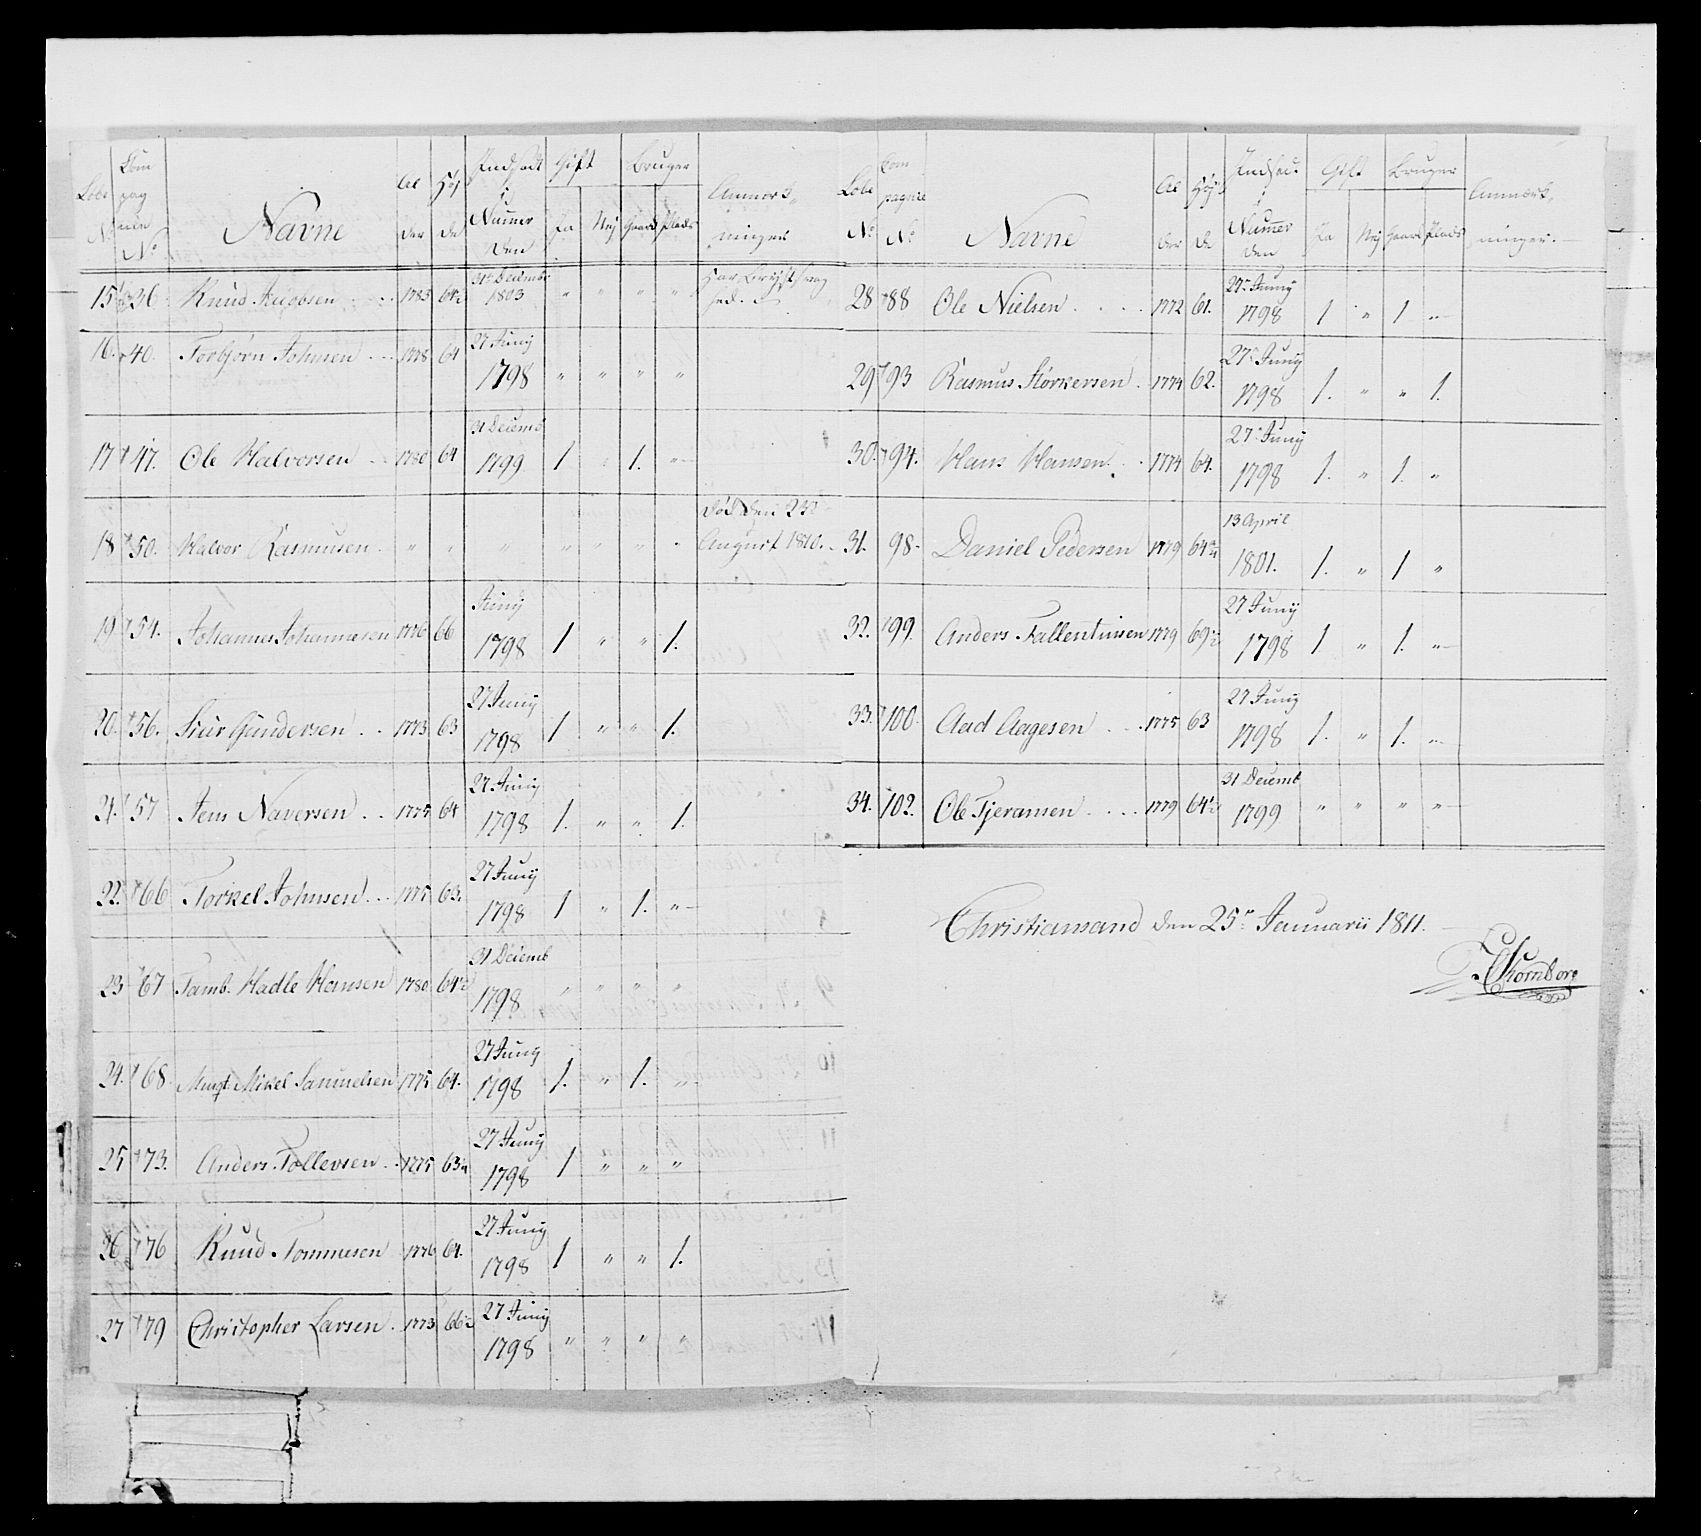 Lobe No | Compagnie No | Navne | Alder | Høyde | Indsadt i Numer den | Gift Ja | Nej | Bruger Gaard | Plads | Anmærkninger
15 | 36 | Knud Jacobsen | 1783 | 64½ | 31te Decembr 1803 | " | " | " | " | 
16. | 40. | Torbjørn Johnsen | 1778 | 64 | 27 Junij 1798 | " | " | " | "
17 | 47. | Ole Halvorsen | 1780 | 64 | 31 Decemb 1799 | 1 | " | 1. | "
18 | 50. | Halvor Rasmusen | " | " | | " | " | " | " | Død den August 1810.
19 | 54. | Johannes Johannesen | 1776 | 66 | Junij 1798 | 1 | " | " | 1.
20. | 56. | Siur Gundersen | 1773 | 63 | 27 Junij 1798 | 1 | " | " | 1.
21. | 57 | Jens Naversen | 1775 | 64 | 27 Junij 1798 | 1. | " | " | 1.
22. | 66 | Torkel Johnsen | 1775 | 63. | 27 Junij 1798 | 1 | " | 1. | "
23 | 67 | Tamb. Hadle Hansen | 1780 | 64½ | 31 Decemb 1798 | " | " | " | "
24. | 68 | Mikel Samuelsen | 1775 | 64. | 27 Junij 1798 | 1. | " | 1. | "
25 | 73. | Anders Tollevsen | 1775 | 63 | 27 Junij 1798 | 1 | " | " | "
26 | 76 | Knud Tommesen | 1776 | 64. | 27 Junij 1798 | 1 | " | " | 1.
27 | 79 | Christopher Larsen | 1773 | 66½ | 27 Junij 1798 | " | " | " | "
Lobe No | Compagnie No | Navne | Alder | Høyde | Indsad i Numer den | Gift Ja | Nej | Bruger Gaard | Plads | Anmærkninger.
28 | 88 | Ole Nielsen | 1772 | 61. | 27 Junij 1798 | 1 | " | 1 | "
29 | 93 | Rasmus Størkersen | 1774 | 62. | 27 Junij 1798 | 1. | " | " | 1.
30. | 94. | Hans Hansen | 1774 | 64. | 27 Junij 1798 | 1. | " | 1. | "
31. | 98. | Daniel Pedersen | 1779 | 64 | 13 April 1801. | 1. | " | 1 | "
32. | 99. | Anders Fallentinsen | 1779 | 69½ | 27 Junij 1798 | 1 | " | 1. | "
33. | 100. | Aad Aagesen | 1775 | 63 | 27 Junij 1798 | 1. | " | 1. | "
34. | 102. | Ole Tjeransen | 1779 | 64½ | 31 Decemb 1799 | " | " | " | "
Christiansand den 25de Januarii 1811.